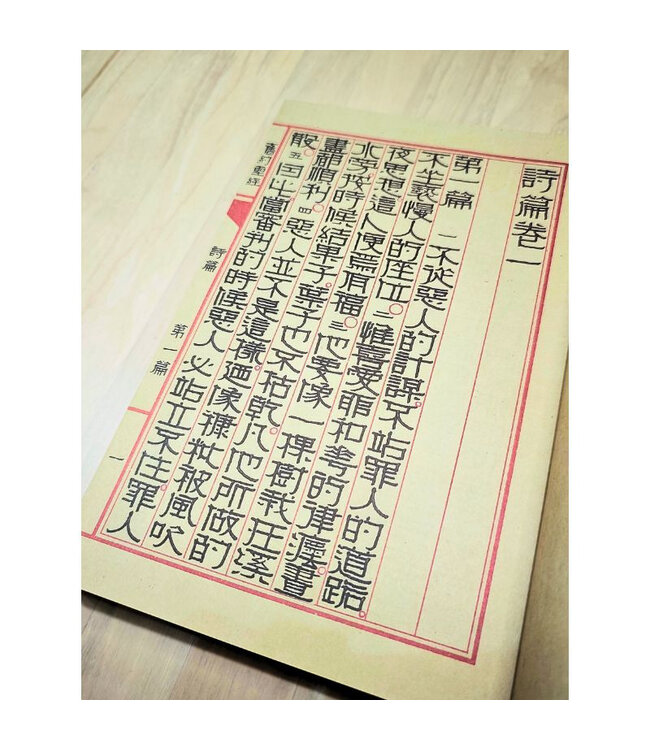 詩篇卷一
第一篇 一 不從惡人的計謀。不站罪人的道路。
不坐褻慢人的座位。二惟喜愛耶和華的律法。晝
夜思想這人便爲有福。三他要像一棵樹栽在溪
水旁按時候結果子。葉子也不枯乾。凡他所做的
盡都順利。四惡人並不是這樣。迺像糠粃被風吹
散。五因此當審判的時候惡人必站立不住罪人
舊約聖經 詩篇 第一篇 一